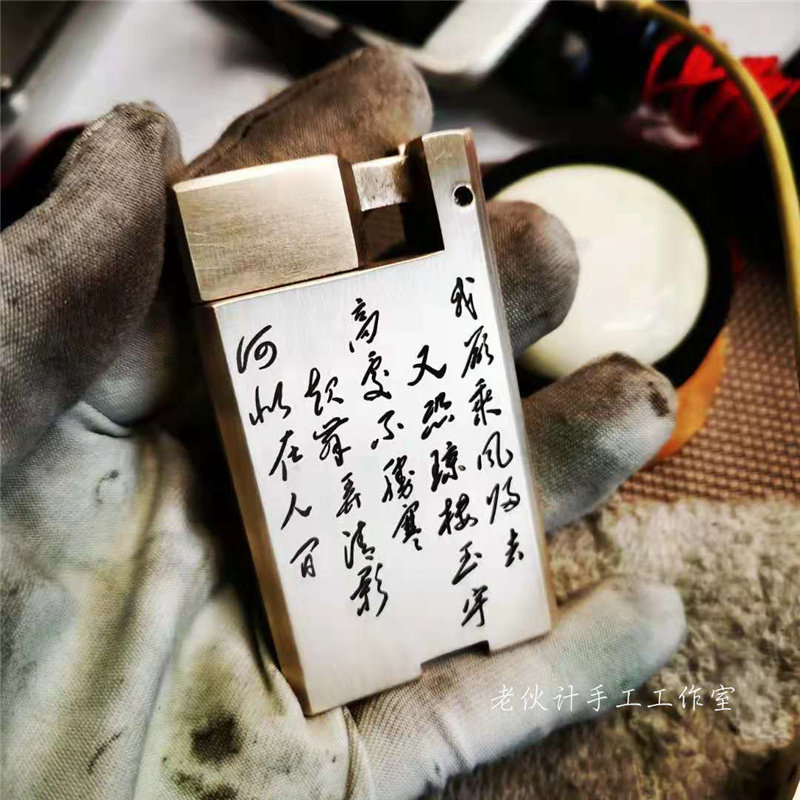 我愿乘风归去
又恐琼楼玉宇
高处不胜寒
起舞弄清影
何似在人间
老伙计手工工作室